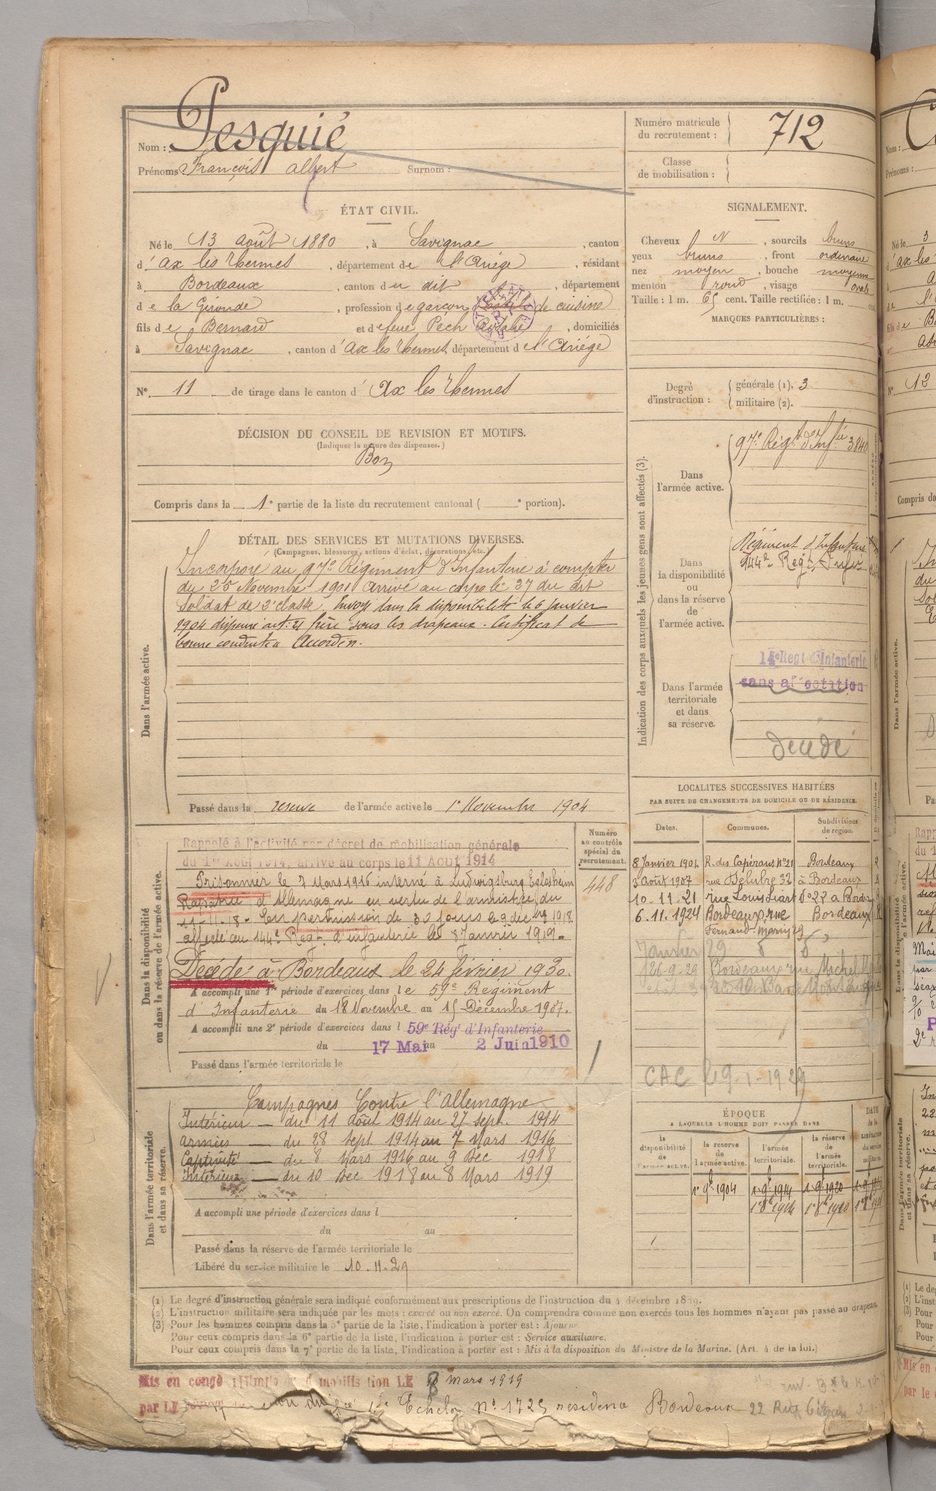 Nom : Pesquié
Prénoms François albert Surnom :
Numéro matricule du recrutement : 712
Classe de mobilisation :
ÉTAT CIVIL.
Né le 13 août 1880, à Savignac, canton
d'ax les Thermes, département de l'Ariége, résidant
à Bordeaux, canton du dit, département
de la Gironde, profession de garçon de cuisine
fils de Bernard et de feue Pech, domiciliés
à Savignac, canton d'ax les Thermes, département de l'Ariége
N° 11 de tirage dans le canton d'Ax les Thermes
DÉCISION DU CONSEIL DE REVISION ET MOTIFS.
(Indiquer la nature des dispenses.)
Bon
Compris dans la 1e partie de la liste du recrutement cantonal ( e portion).
SIGNALEMENT.
Cheveux N, sourcils bruns
yeux bruns, front ordinaire
nez moyen, bouche moyenne
menton rond, visage ovale
Taille : 1 m. 65 cent. Taille rectifiée : 1 m.
MARQUES PARTICULIÈRES :
Degré d'instruction : générale (1). 3
militaire (2).
Indication des corps auxquels les jeunes gens sont affectés (3).
Dans l'armée active.
97e Régt d'Infie
Dans la disponibilité ou dans la réserve de l'armée active.
Régiment d'Infanterie
144e Régt Infie
Dans l'armée territoriale et dans sa réserve.
14e Regt d'Infanterie
sans affectation
décédé
DÉTAIL DES SERVICES ET MUTATIONS DIVERSES.
(Campagnes, blessures, actions d'éclat, décorations, etc.)
Dans l'armée active.
Incorporé au 97e Régiment d'Infanterie à compter
du 25 Novembre 1901 arrivé au corps le 27 du dit
Soldat de 2e classe. Envoyé dans la disponibilité le 6 Janvier
1904 dispensé art. 21 frère sous les drapeaux. Certificat de
bonne conduite Accordé.
Passé dans la réserve de l'armée active le 1er Novembre 1904
Dans la disponibilité ou dans la réserve de l'armée active.
Numéro au contrôle spécial du recrutement.
448
Rappelé à l'activité par décret de mobilisation générale
du 1er Août 1914, arrivé au corps le 11 Août 1914
Prisonnier le 7 Mars 1916 interné à Ludwigsburg Eglosheim
Rapatrié d'Allemagne en vertu de l'armistice du
11-11-18. En permission de 30 jours
affecté au 144e Régt. d'infanterie le 8 Janvier 1919.
Décédé à Bordeaux le 24 février 1930.
A accompli une 1re période d'exercices dans le 59e Régiment
d'Infanterie du 18 Novembre au 15 Décembre 1907.
A accompli une 2e période d'exercices dans l 59e Rég' d'Infanterie
du 17 Mai au 2 Juin 1910
Passé dans l'armée territoriale le
LOCALITES SUCCESSIVES HABITÉES
PAR SUITE DE CHANGEMENTS DE DOMICILE OU DE RÉSIDENCE.
Dates. Communes. Subdivisions de région.
8 Janvier 1904 R. des Capérans n°21 Bordeaux
3 Août 1907 rue Délurbe 32 à Bordeaux
10.11.21 rue Louis Liart n° 27 à Bordx
6.11.1924 Bordeaux, rue Bordeaux
Fernand Marin
Janvier 29
26-9-29 Bordeaux rue Michel
CAC 29-1-1929
Dans l'armée territoriale et dans sa réserve.
Campagnes Contre l'Allemagne
Intérieur — du 11 août 1914 au 27 sept. 1914
armées — du 28 sept 1914 au 7 Mars 1916
Captivité — du 8 Mars 1916 au 9 Déc 1918
Intérieur — du 10 Déc 1918 au 8 Mars 1919
A accompli une période d'exercices dans l
du au
Passé dans la réserve de l'armée territoriale le
Libéré du service militaire le 10.11.29
ÉPOQUE
A LAQUELLE L'HOMME DOIT PASSER DANS
la disponibilité de l'armée active. la réserve de l'armée active. l'armée territoriale. la réserve de l'armée territoriale.
1er 9bre 1904 1er 9bre 1914 1er 9bre 1920
1er 8bre 1914 1er 8bre 1920
(1) Le degré d'instruction générale sera indiqué conformément aux prescriptions de l'instruction du 4 décembre 1889.
(2) L'instruction militaire sera indiquée par les mots : exercé ou non exercé. On comprendra comme non exercés tous les hommes n'ayant pas passé au drapeau.
(3) Pour les hommes compris dans la 5e partie de la liste, l'indication à porter est : Ajourné
Pour ceux compris dans la 6e partie de la liste, l'indication à porter est : Service auxiliaire.
Pour ceux compris dans la 7e partie de la liste, l'indication à porter est : Mis à la disposition du Ministre de la Marine. (Art. 4 de la loi.)
Mis en congé illimité de démobilisation LE 8 mars 1919
par LE Echelon N° 1725 résidence Bordeaux 22 Rue